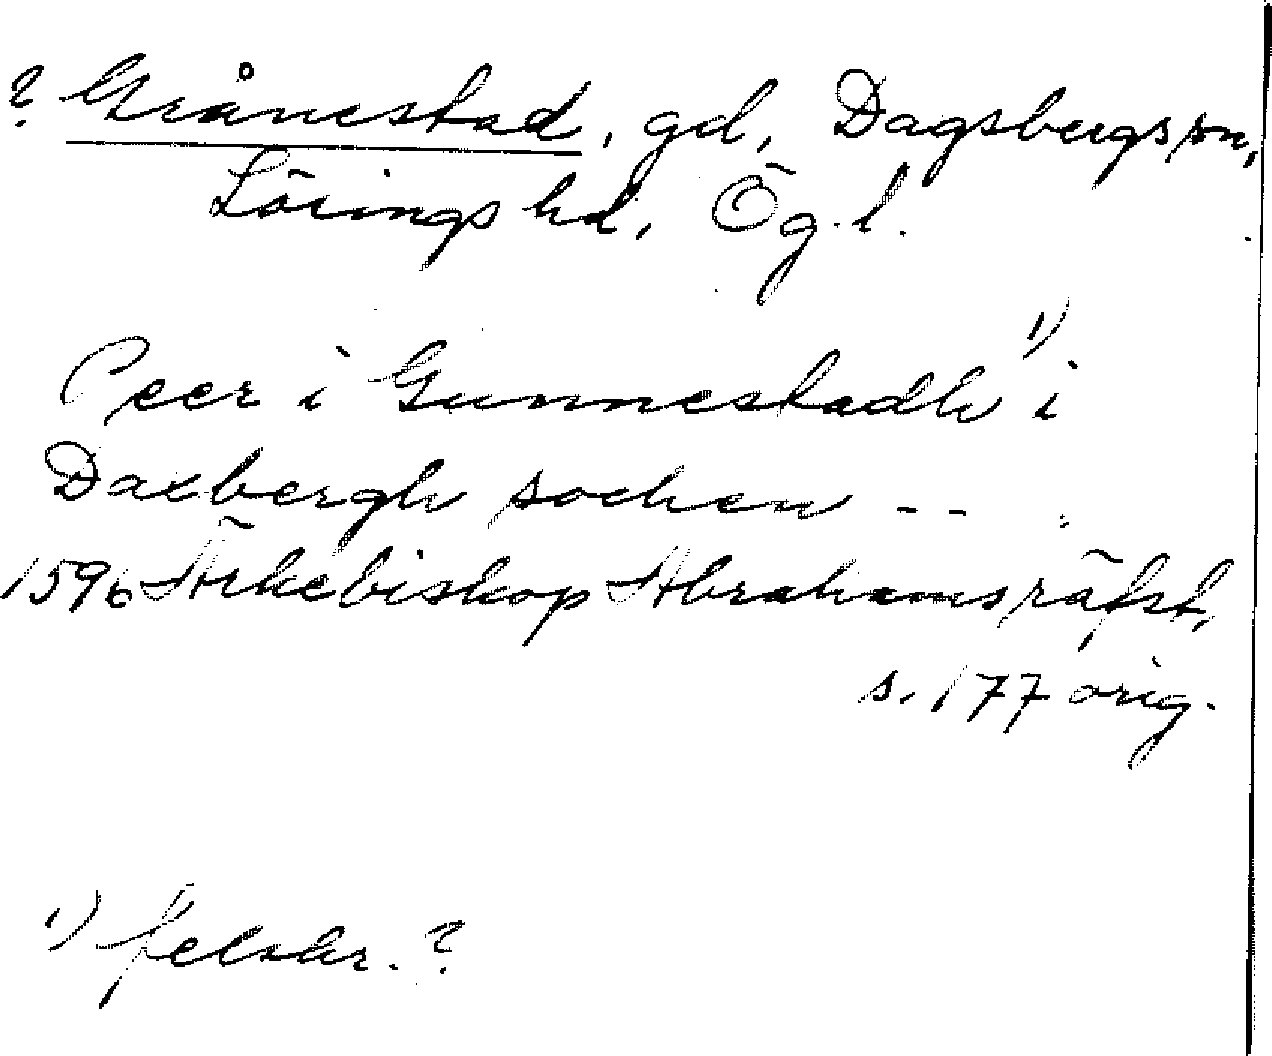 ? Grånestad, gd, Dagsbergs sn,
Lösings hd, Ög. l.
Peer i Gunnestadh ¹) i
Daxbergh sochen --
1596 Ärkebiskop Abrahams räfst,
s. 177 orig.
¹) felskr. ?